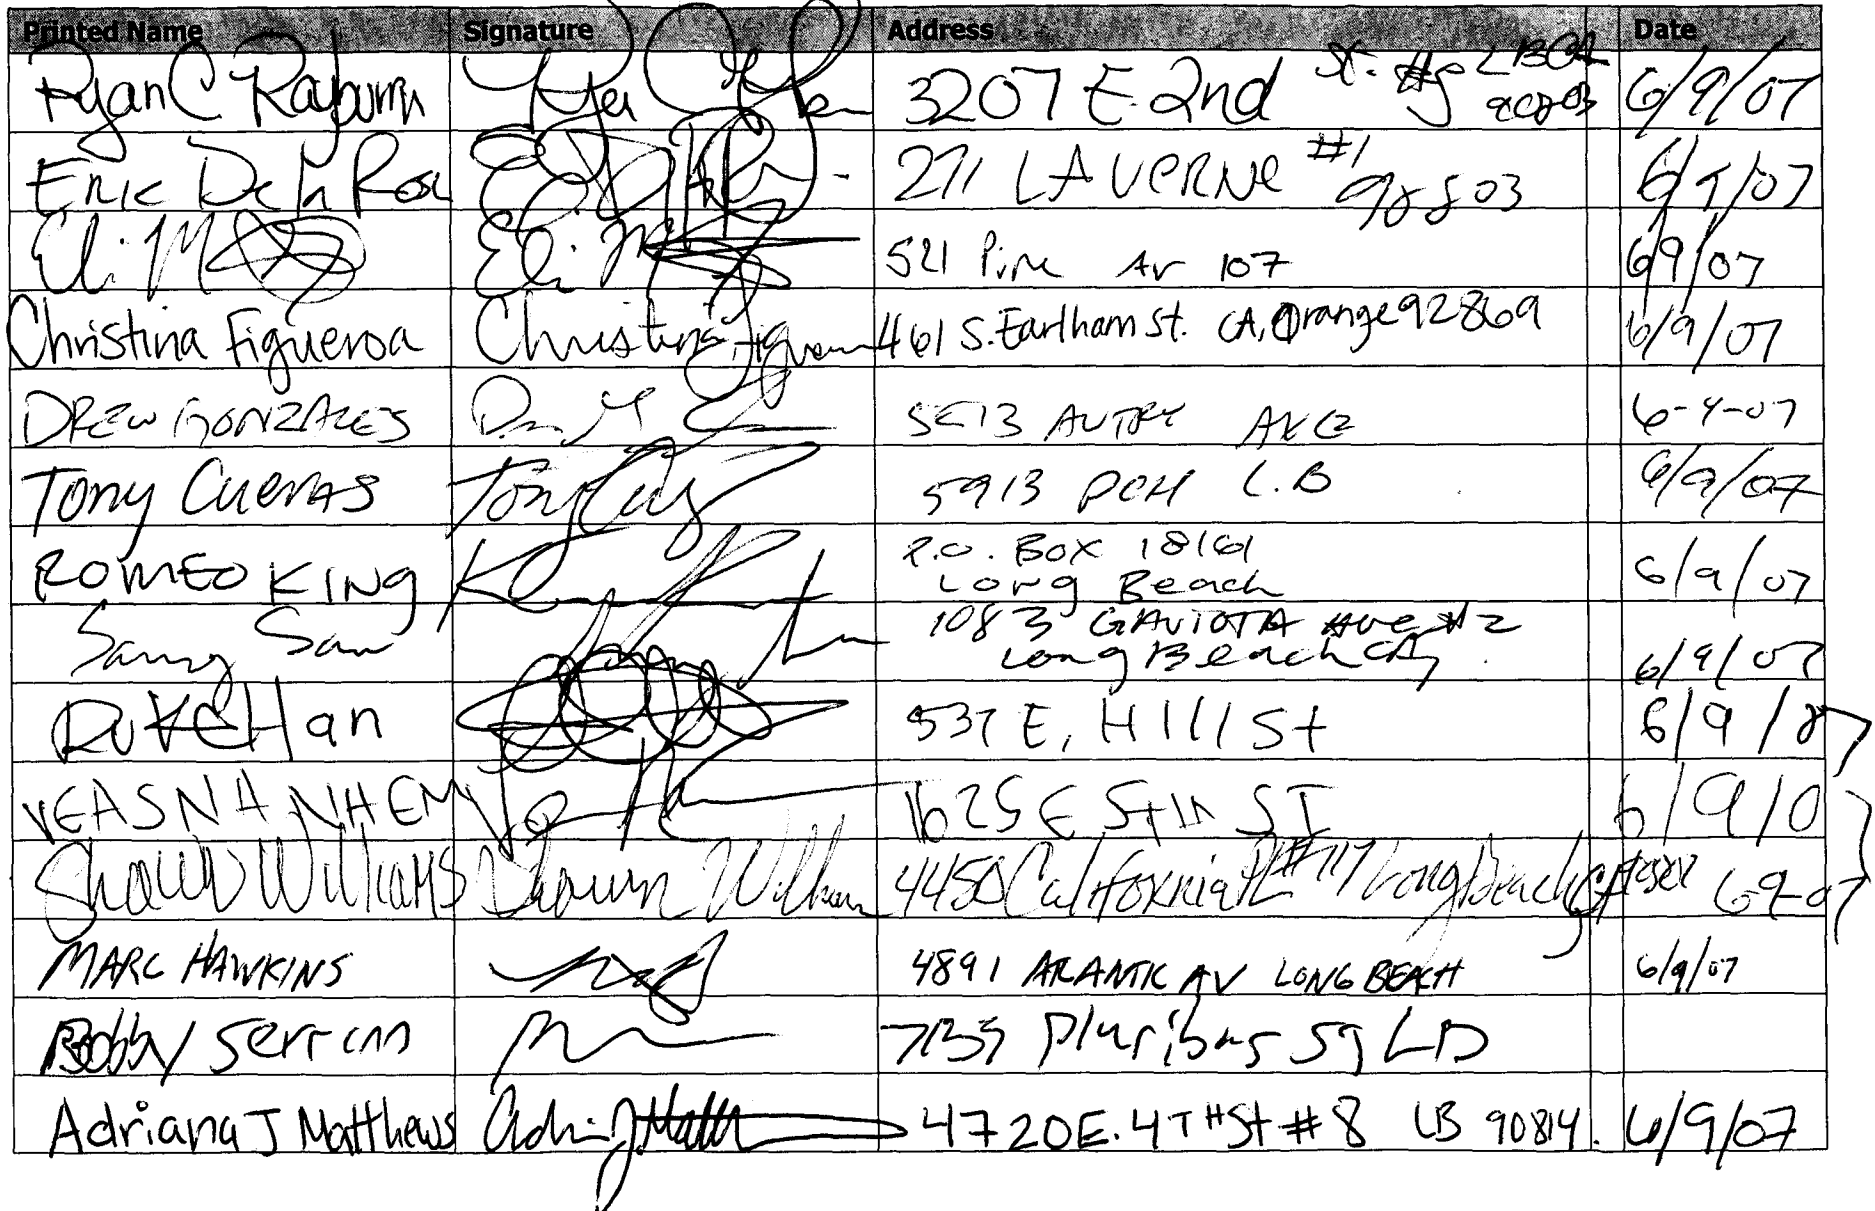 Printed Name Signature Address Date
Ryan C Rayburn 3207 E. 2nd St. #5 LB CA 90803 6/9/07
Eric De La Rosa 271 LAVERNE #1 90803 6/9/07
Eli M Eli M 521 Pine Av 107 6/9/07
Christina Figueroa Christina Figueroa 461 S. Earlham St. CA, Orange 92869 6/9/07
DREW GONZALES AUTRY AVE 6-9-07
Tony Cuevas Tony 5913 PCH L.B 6/9/07
ROMEO KING P.O. BOX 18161
Long Beach 6/9/07
Samy Sam 1083 GAVIOTA Ave #2
Long Beach CA, 6/9/07
Han 537 E, Hill St 6/9/07
VEASNA NHEM 1625 E 5th ST 6/9/0
Shawn Williams Shawn William 4450 California PL #117 Long Beach CA 6-9-07
MARC HAWKINS 4891 ATLANTIC AV LONG BEACH 6/9/07
Bobby Serrano Pluribus
Adriana J Matthews 4720 E. 4TH St #8 LB 90814. 6/9/07